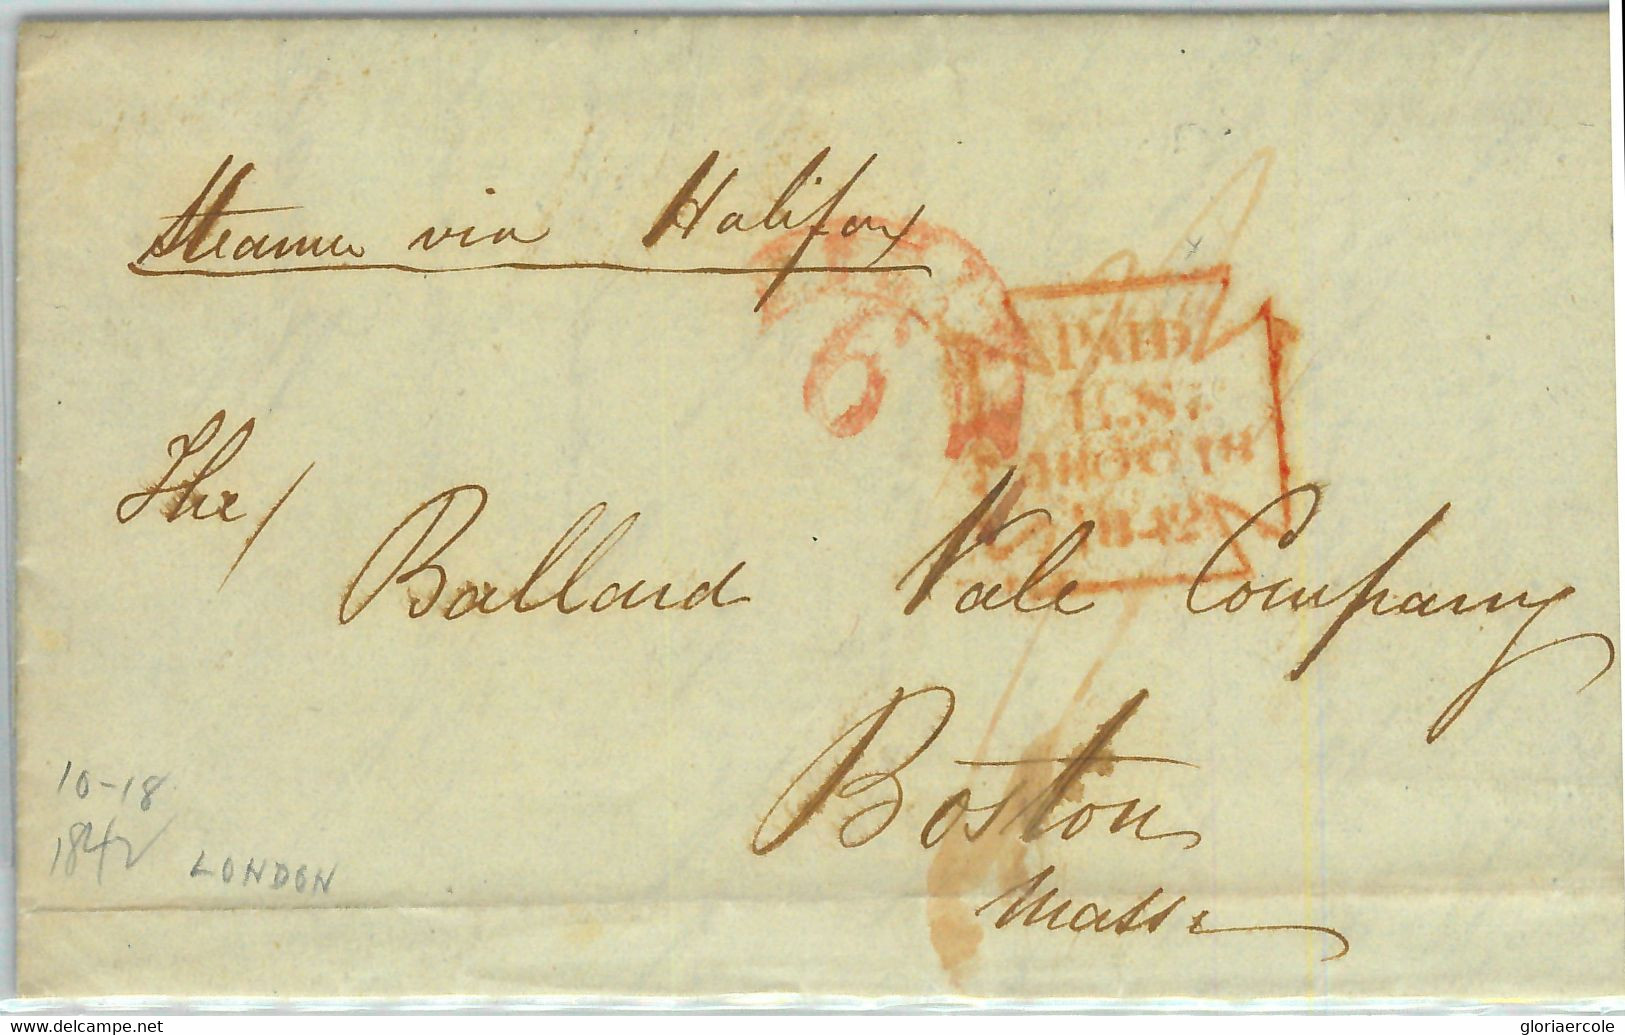 Steamer via Halifax
6
PAID
1842
The
Ballard Vale Company
Boston
Mass
10-18
1842
LONDON
www.delcampe.net
gloriaercole